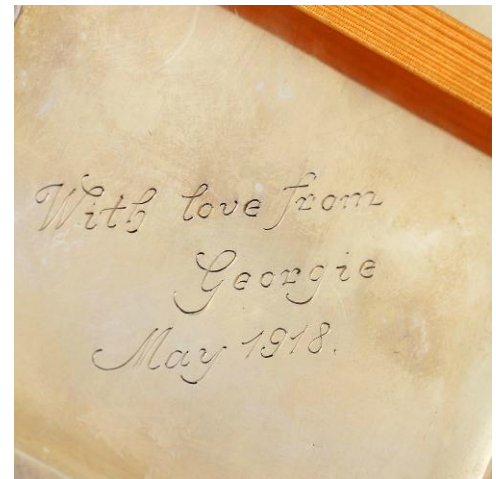 With love from
Georgie
May 1918.